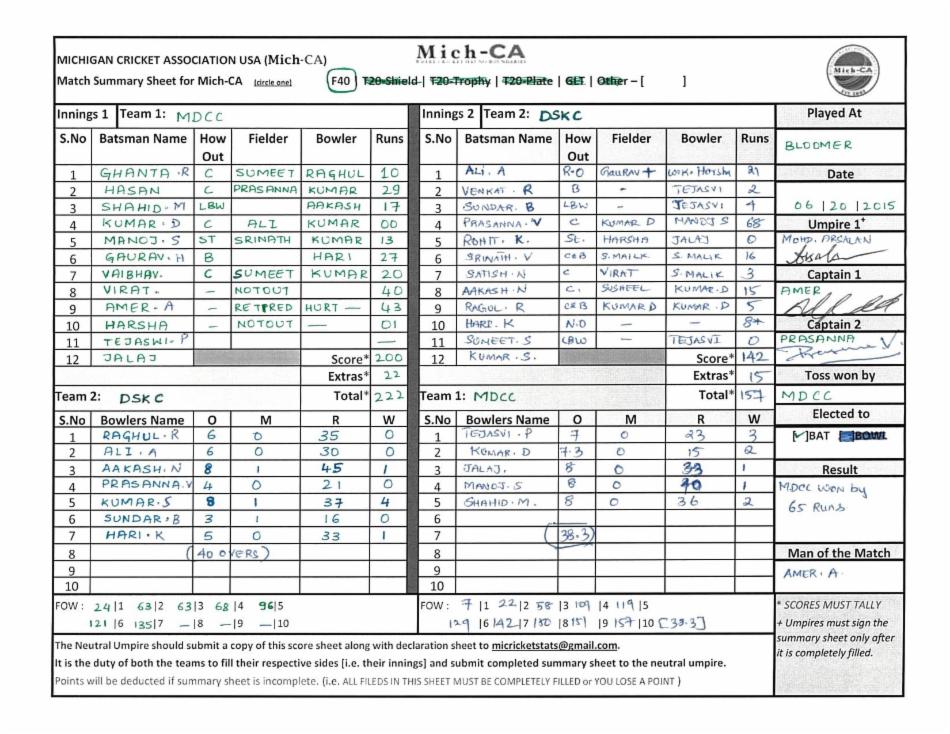 Mich-CA
MICHIGAN CRICKET ASSOCIATION USA (Mich-CA)
Match Summary Sheet for Mich-CA (circle one) F40 | T20-Shield | T20-Trophy | T20-Plate | GLT | Other – [ ]
Mich-CA
Innings 1 Team 1: MDCC
S.No Batsman Name How Out Fielder Bowler Runs
1 GHANTA .R C SUMEET RAGHUL 10
2 HASAN C PRASANNA KUMAR 29
3 SHAHID-M LBW AAKASH 17
4 KUMAR . D C ALI KUMAR 00
5 MANOJ . S ST SRINATH KUMAR 13
6 GAURAV . H B HARI 27
7 VAIBHAV. C SUMEET KUMAR 20
8 VIRAT . – NOTOUT 40
9 AMER - A – RETIRED HURT — 43
10 HARSHA – NOTOUT — 01
11 TEJASWI - P —
12 JALAJ Score* 200
Extras* 22
Team 2: DSKC Total* 222
S.No Bowlers Name O M R W
1 RAGHUL . R 6 0 35 0
2 ALI . A 6 0 30 0
3 AAKASH . N 8 1 45 1
4 PRASANNA.V 4 0 21 0
5 KUMAR . S 8 1 37 4
6 SUNDAR . B 3 1 16 0
7 HARI . K 5 0 33 1
8 (40 OVERS)
9
10
FOW : 24|1 63|2 63|3 68|4 96|5
121|6 135|7 —|8 —|9 —|10
Innings 2 Team 2: DSKC
S.No Batsman Name How Out Fielder Bowler Runs
1 ALI . A R.O GAURAV + 21
2 VENKAT . R B - TEJASVI 2
3 SUNDAR. B LBW - TEJASVI 4
4 PRASANNA . V C KUMAR D MANOJ S 68
5 ROHIT . K. St. HARSHA JALAJ 0
6 SRINATH . V C&B S.MALIK S. MALIK 16
7 SATISH . N C VIRAT S. MALIK 3
8 AAKASH . N C. SUSHEEL KUMAR.D 15
9 RAGUL . R C&B KUMAR D KUMAR . D 5
10 HARI . K N.O – – 8*
11 SUMEET. S LBW – TEJASVI 0
12 KUMAR . S. Score* 142
Extras* 15
Team 1: MDCC Total* 157
S.No Bowlers Name O M R W
1 TEJASVI - P 7 0 23 3
2 KUMAR. D 7.3 0 15 2
3 JALAJ. 8 0 39 1
4 MANOJ. S 8 0 40 1
5 SHAHID - M. 8 0 36 2
6
7 (38.3)
8
9
10
FOW : 7 |1 22|2 58 |3 109 |4 119|5
129 |6 142|7 150 |8 151 |9 157|10 [38.3]
Played At
BLOOMER
Date
06 | 20 | 2015
Umpire 1+
MOHD. ARSALAN
Captain 1
AMER
Captain 2
PRASANNA
Toss won by
MDCC
Elected to
[✓]BAT BOWL
Result
MDCC won by
65 RUNS
Man of the Match
AMER . A
* SCORES MUST TALLY
+ Umpires must sign the
summary sheet only after
it is completely filled.
The Neutral Umpire should submit a copy of this score sheet along with declaration sheet to micricketstats@gmail.com.
It is the duty of both the teams to fill their respective sides [i.e. their innings] and submit completed summary sheet to the neutral umpire.
Points will be deducted if summary sheet is incomplete. (i.e. ALL FILEDS IN THIS SHEET MUST BE COMPLETELY FILLED or YOU LOSE A POINT )